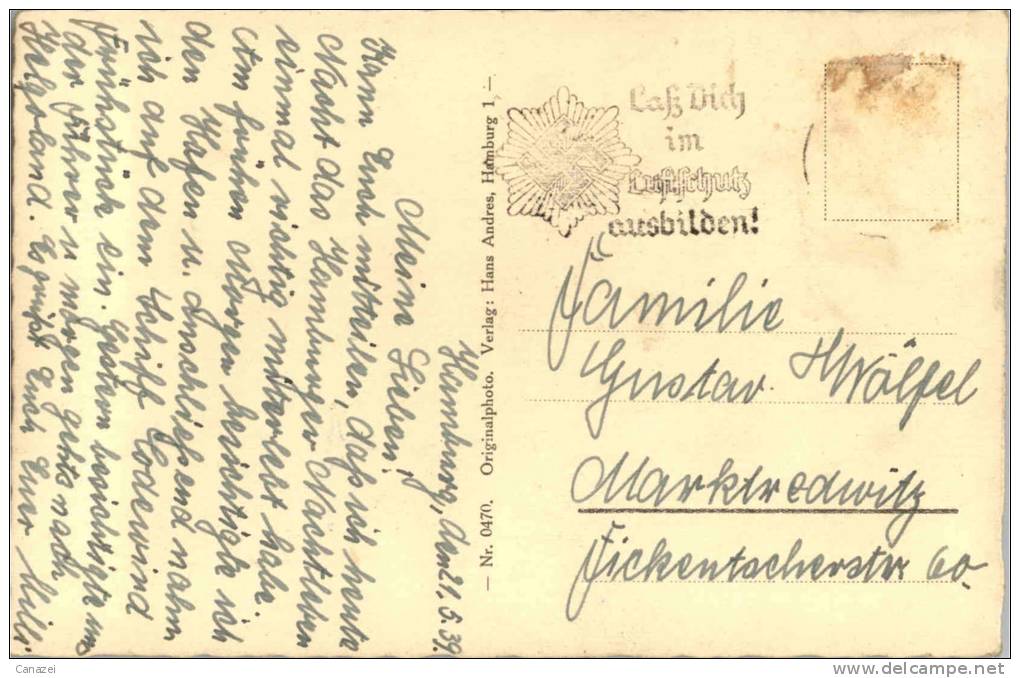 Hamburg, den 21.5.39.
Meine Lieben!
Kann Euch mitteilen, daß ich heute
Nacht das Hamburger Nachtleben
einmal richtig miterlebt habe.
Am frühen Morgen besichtigte ich
den Hafen u. Anschließend nahm
ich auf dem Schiff
Frühstück ein. Gestern besichtigte uns
der Führer u morgen gehts nach
Helgoland. Es grüßt Euch Euer Willi
— Nr. 0470. Originalphoto. Verlag: Hans Andres, Hamburg 1, —
Laß Dich
im
Luftschutz
ausbilden!
Familie
Gustav Wölfel
Marktredwitz
Fickentscherstr 60
Canazei
delcampe.net